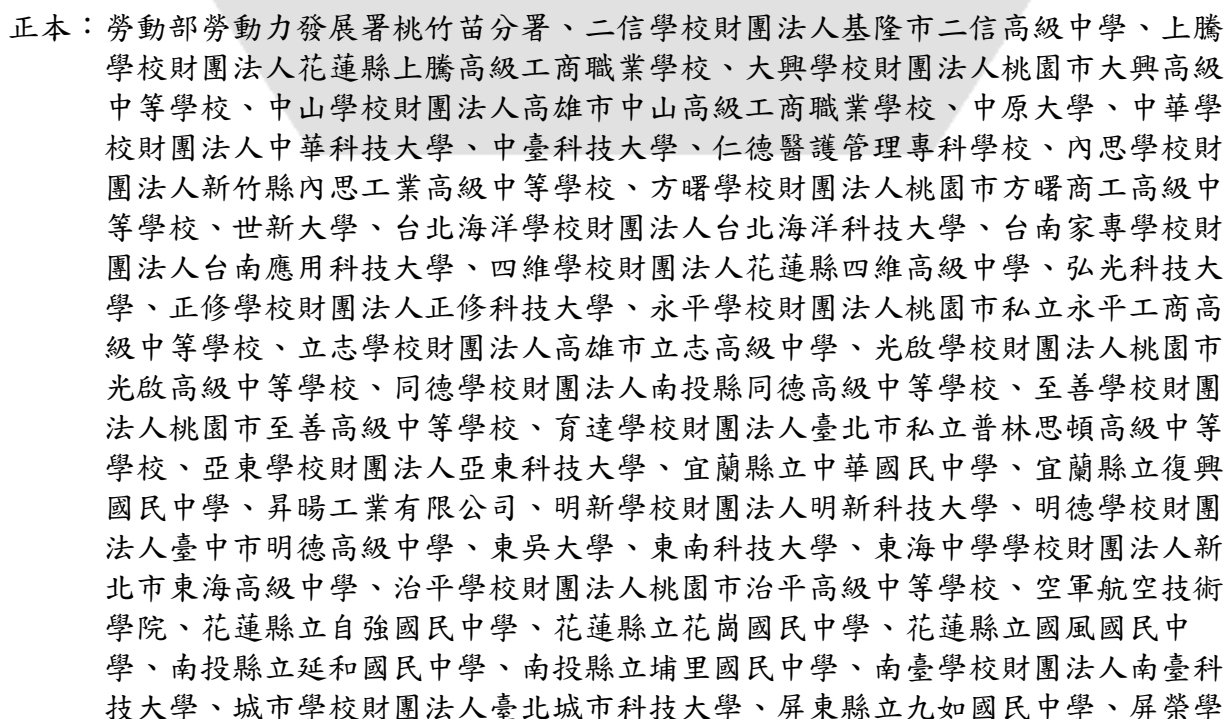 正本：勞動部勞動力發展署桃竹苗分署、二信學校財團法人基隆市二信高級中學、上騰
學校財團法人花蓮縣上騰高級工商職業學校、大興學校財團法人桃園市大興高級
中等學校、中山學校財團法人高雄市中山高級工商職業學校、中原大學、中華學
校財團法人中華科技大學、中臺科技大學、仁德醫護管理專科學校、內思學校財
團法人新竹縣內思工業高級中等學校、方曙學校財團法人桃園市方曙商工高級中
等學校、世新大學、台北海洋學校財團法人台北海洋科技大學、台南家專學校財
團法人台南應用科技大學、四維學校財團法人花蓮縣四維高級中學、弘光科技大
學、正修學校財團法人正修科技大學、永平學校財團法人桃園市私立永平工商高
級中等學校、立志學校財團法人高雄市立志高級中學、光啟學校財團法人桃園市
光啟高級中等學校、同德學校財團法人南投縣同德高級中等學校、至善學校財團
法人桃園市至善高級中等學校、育達學校財團法人臺北市私立普林思頓高級中等
學校、亞東學校財團法人亞東科技大學、宜蘭縣立中華國民中學、宜蘭縣立復興
國民中學、昇暘工業有限公司、明新學校財團法人明新科技大學、明德學校財團
法人臺中市明德高級中學、東吳大學、東南科技大學、東海中學學校財團法人新
北市東海高級中學、治平學校財團法人桃園市治平高級中等學校、空軍航空技術
學院、花蓮縣立自強國民中學、花蓮縣立花崗國民中學、花蓮縣立國風國民中
學、南投縣立延和國民中學、南投縣立埔里國民中學、南臺學校財團法人南臺科
技大學、城市學校財團法人臺北城市科技大學、屏東縣立九如國民中學、屏榮學